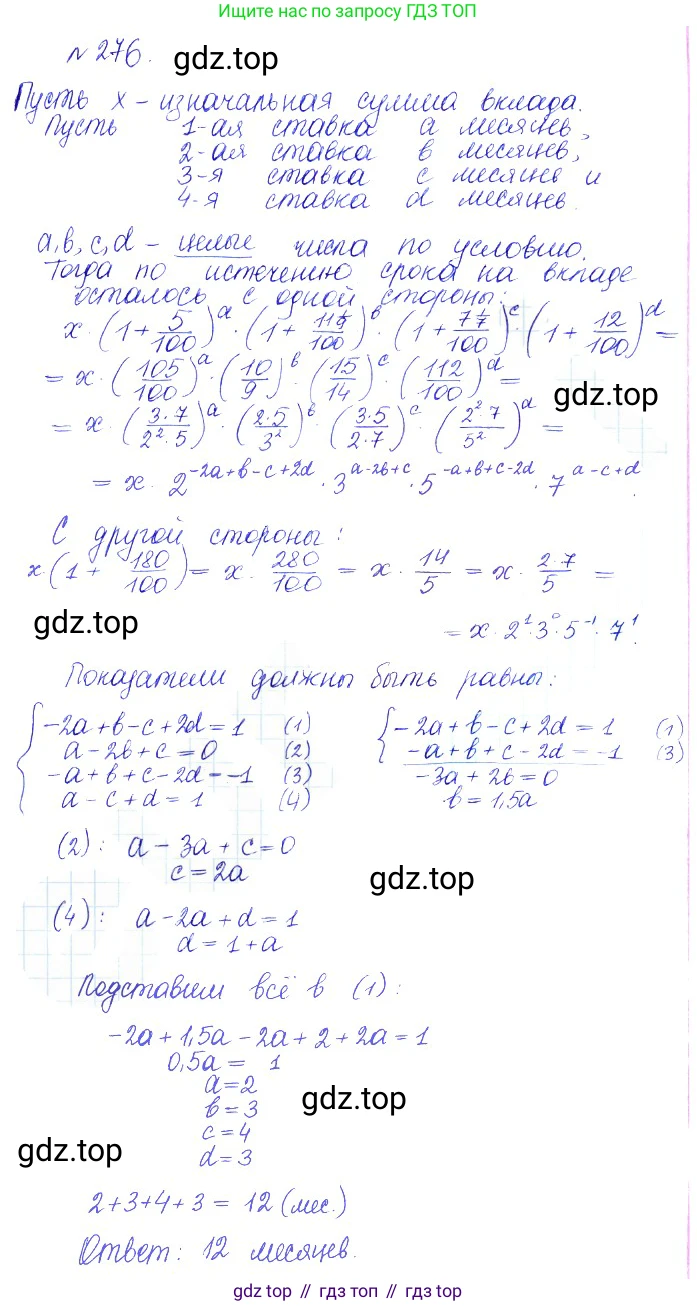 Ищите нас по запросу ГДЗ ТОП
№ 276. gdz.top
Пусть x – изначальная сумма вклада.
Пусть 1-ая ставка a месяцев,
2-ая ставка в месяцев,
3-я ставка c месяцев и
4-я ставка d месяцев.
a, в, c, d – целые числа по условию.
Тогда по истечению срока на вкладе
осталось с одной стороны:
x · (1 + 5/100)^a · (1 + 11 1/9/100)^в · (1 + 7 1/7/100)^c · (1 + 12/100)^d =
= x · (105/100)^a · (10/9)^в · (15/14)^c · (112/100)^d =
gdz.top
= x · (3·7/2²·5)^a · (2·5/3²)^в · (3·5/2·7)^c · (2²·7/5²)^d =
= x · 2^-2a+в-c+2d · 3^a-2в+c · 5^-a+в+c-2d · 7^a-c+d.
С другой стороны:
x · (1 + 180/100) = x · 280/100 = x · 14/5 = x · 2·7/5 =
gdz.top
= x · 2¹ · 3⁰ · 5⁻¹ · 7¹.
Показатели должны быть равны:
{ -2a + в - c + 2d = 1 (1) { -2a + в - c + 2d = 1 (1)
a - 2в + c = 0 (2) -a + в + c - 2d = -1 (3)
-a + в + c - 2d = -1 (3) -3a + 2в = 0
a - c + d = 1 (4) в = 1,5a
(2): a - 3a + c = 0
c = 2a
gdz.top
(4): a - 2a + d = 1
d = 1 + a
Подставим всё в (1):
-2a + 1,5a - 2a + 2 + 2a = 1
0,5a = 1
a = 2
в = 3 gdz.top
c = 4
gdz.top d = 3
2 + 3 + 4 + 3 = 12 (мес.)
Ответ: 12 месяцев.
gdz.top // гдз топ // gdz top // гдз.топ